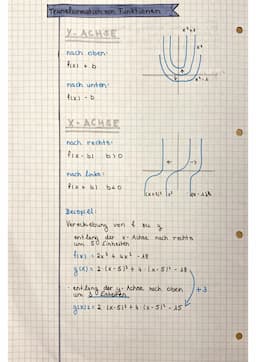 Transformation von Funktionen
Y-ACHSE
nach oben:
f(x) + b
nach unten:
f(x) - b
x²
X-ACHSE
nach rechts:
f(x - b) b>0
nach links:
f(x + b) b<0
(x+5)³ x³
Beispiel:
Verschiebung von f zu g
- entlang der x-Achse nach rechts
um 5 Einheiten
f(x) = 2x³ + 4x² - 18
g(x) = 2·(x-5)³ + 4·(x-5)² - 18
- entlang der y-Achse nach oben
um 3 Einheiten
+3
g(x) = 2·(x-5)³ + 4·(x-5)² - 15